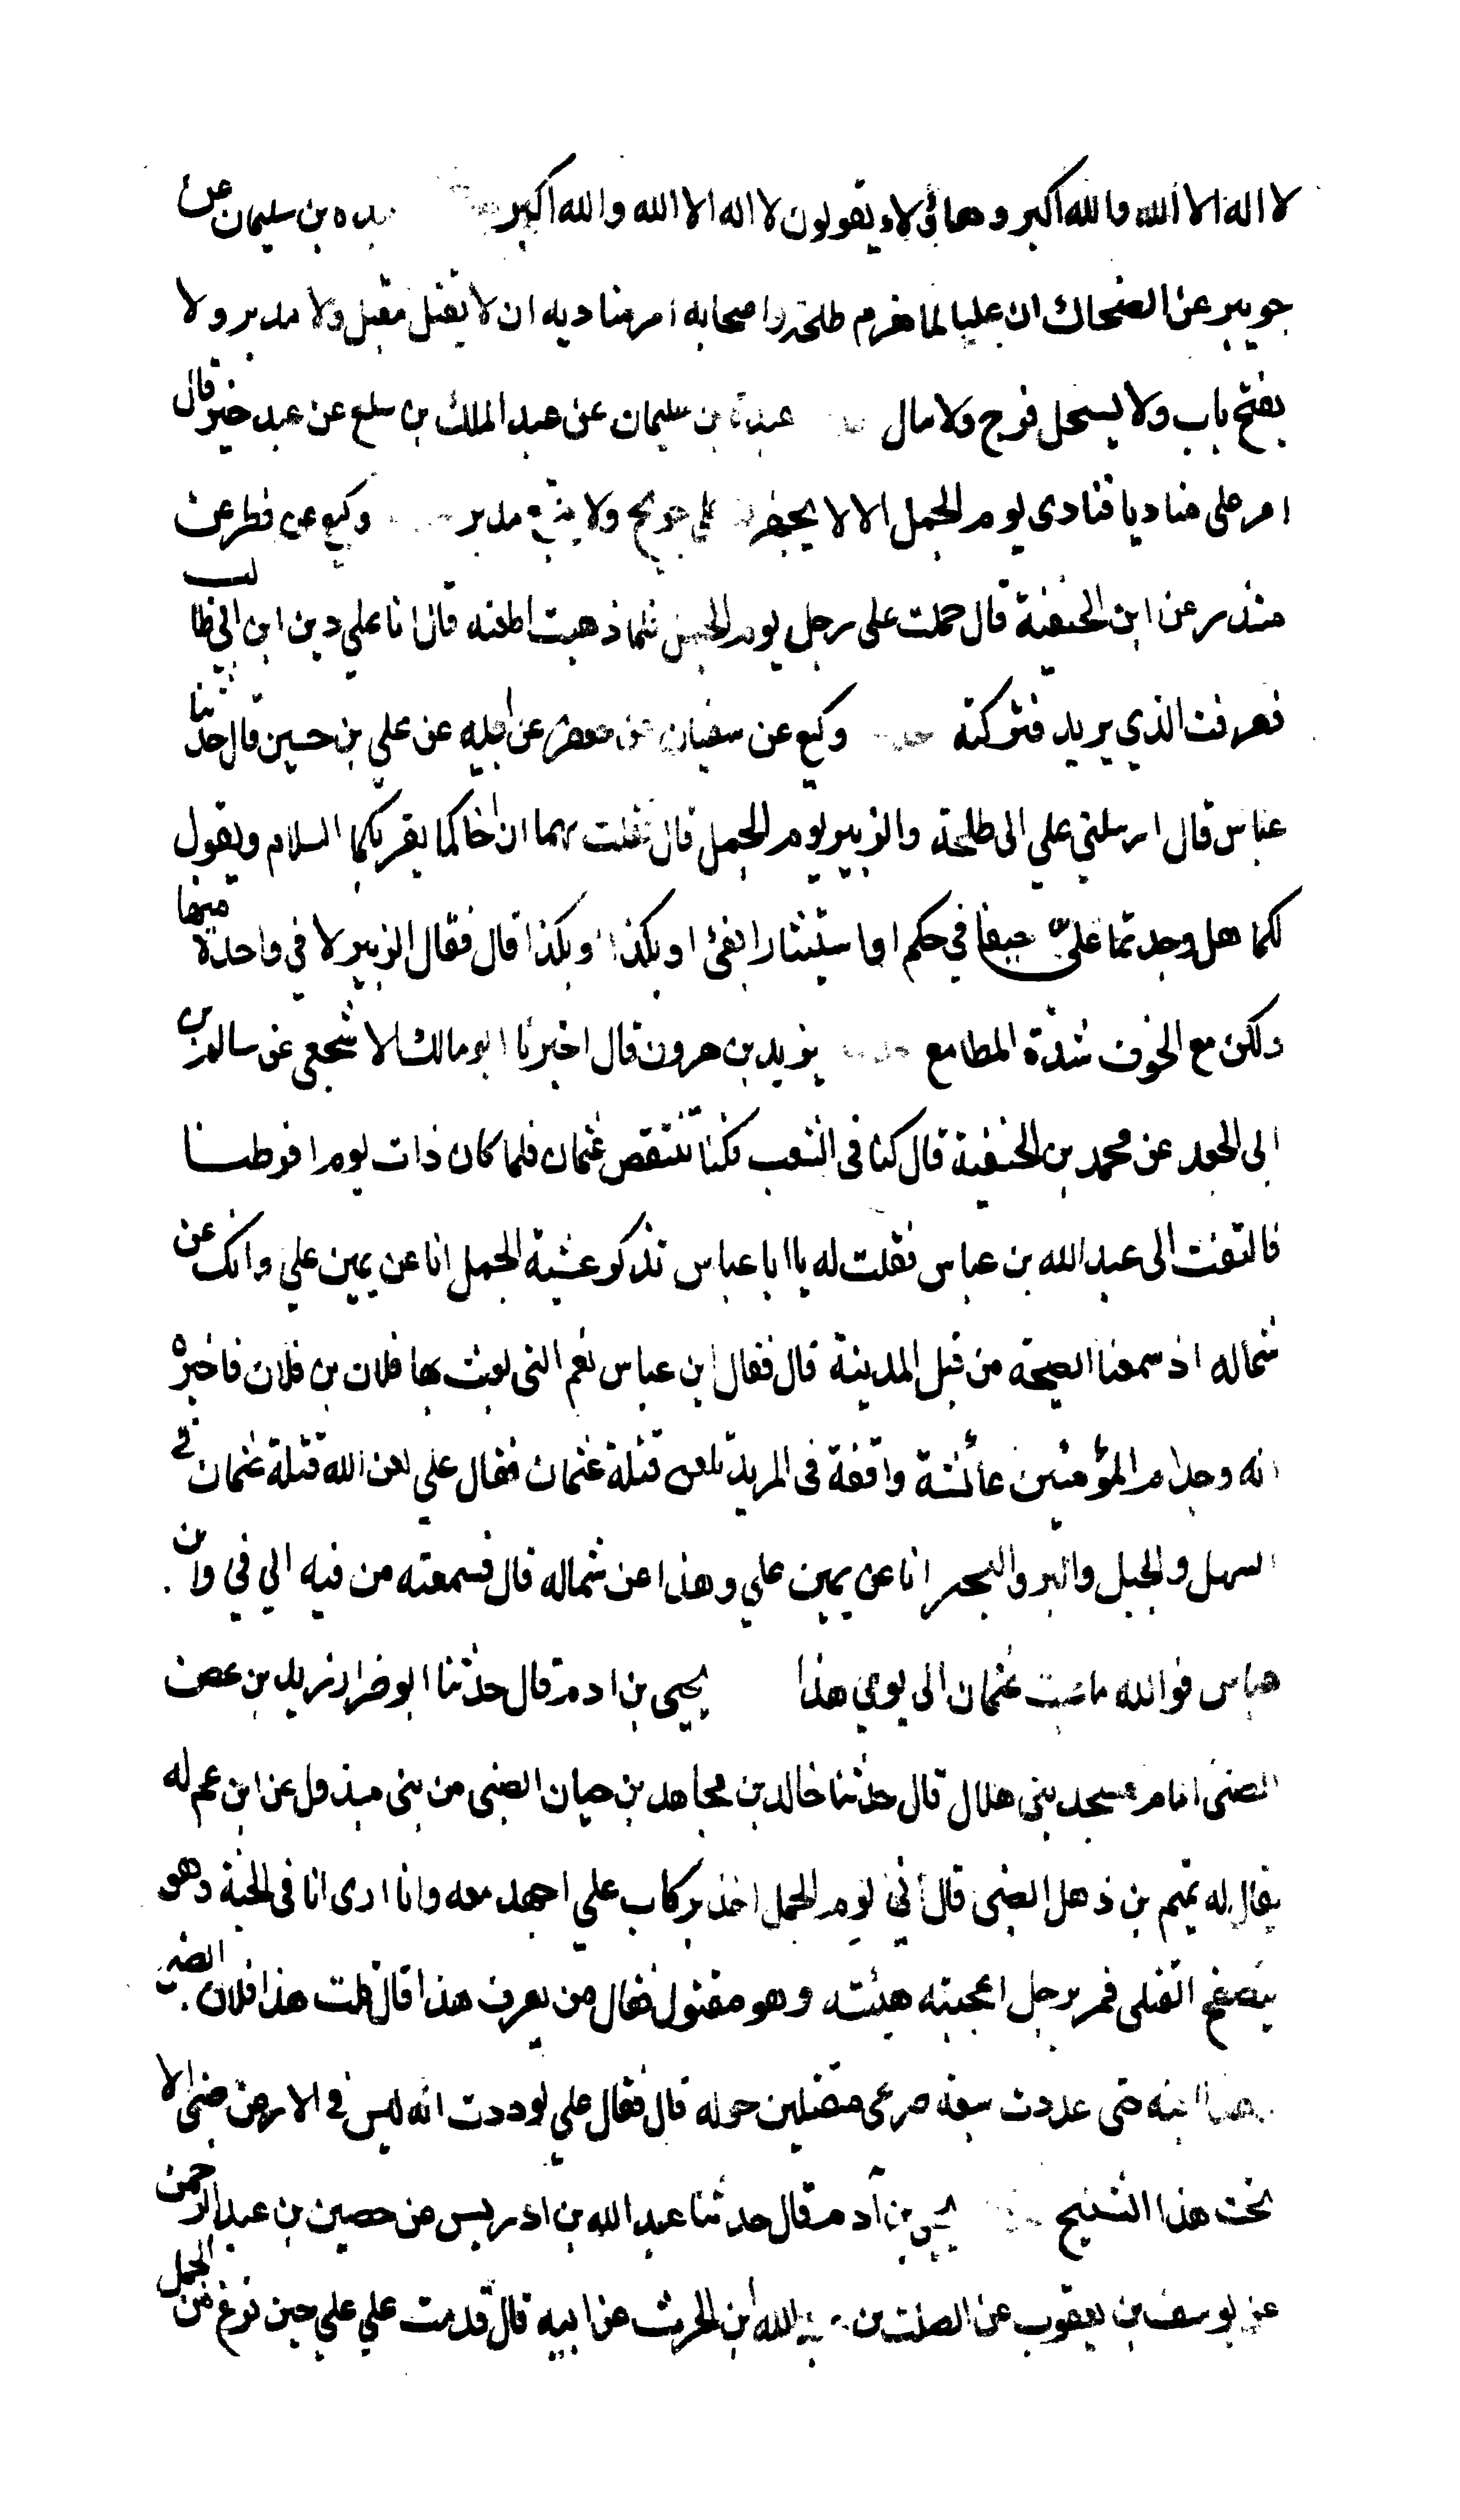 لا اله الا الله والله اكبر وهائولاء يقولون لا اله الا الله والله اكبر بده بن سليمان عن
جويبر عن الضحاك ان عليا لما هزم طلحة واصحابه امر مناديه ان لا يقتل مقبل ولا مدبر ولا
يفتح باب ولا يستحل فرج ولا مال عبدة بن سليمان عن عبد الملك بن سلع عن عبد خير قال
امر علي مناديا فنادى يوم الجمل الا لا يجهزن على جريح ولا يتبع مدبر وكيع عن فطر عن
منذر عن ابن الحنفية قال حملت على رجل يوم الجمل فلما ذهبت اطعنه قال انا على دين ابن ابي طالب
فعرفت الذي يريد فتركته وكيع عن سفيان عن جعفر عن ابيه عن علي بن حسين قال حدثنا
عباس قال ارسلني علي الى طلحة والزبير يوم الجمل قال فقلت لهما ان اخاكما يقريكما السلام ويقول
لكما هل وجدتما علي حيفا في حكم او استيثارا بفئ او بكذا او بكذا قال فقال الزبير لا في واحدة منهما
ولكن مع الخوف شدة المطامع يزيد بن هرون قال اخبرنا ابو مالك الاشجعي عن سالم بن
ابي الجعد عن محمد بن الحنفية قال كنا في الشعب فكنا ننتقص عثمان فلما كان ذات يوم افرطنا
فالتفت الى عبد الله بن عباس فقلت له يا ابا عباس تذكر عشية الجمل انا عن يمين علي وانك عن
شماله اذ سمعنا الصيحة من قبل المدينة قال فقال ابن عباس نعم التي بعث بها فلان بن فلان فاخبره
انه وجد ام المؤمنين عائشة واقفة في المربد تلعن قتلة عثمان فقال علي لعن الله قتلة عثمان في
السهل والجبل والبر والبحر انا عن يمين علي وهذا عن شماله قال فسمعته من فيه الي في وابن
عباس فوالله ما عبت عثمان الى يومي هذا يحيى بن ادم قال حدثنا ابو ضرار زيد بن عصن
الضبي امام مسجد بني هلال قال حدثنا خالد بن مجاهد بن حيان الضبي من بني مبذول عن ابن عم له
يقال له تميم بن ذهل الضبي قال اني يوم الجمل اخذ بركاب علي اجهد معه وانا ارى انا في الجنة وهو
يتصفح القتلى فمر برجل اعجبته هيئته وهو مقتول فقال من يعرف هذا قال قلت هذا فلان الضبي
حتى عددت سبعة صرعى مقتلين حوله قال فقال علي لوددت انه ليس في الارض ضبي الا
تحت هذا الشيخ يحيى بن آدم قال حدثنا عبد الله بن ادريس عن حصين بن عبد الرحمن
عن يوسف بن يعقوب عن الصلت بن عبد الله ابن الحرث عن ابيه قال قدمت علي علي حين فرغ من الجمل